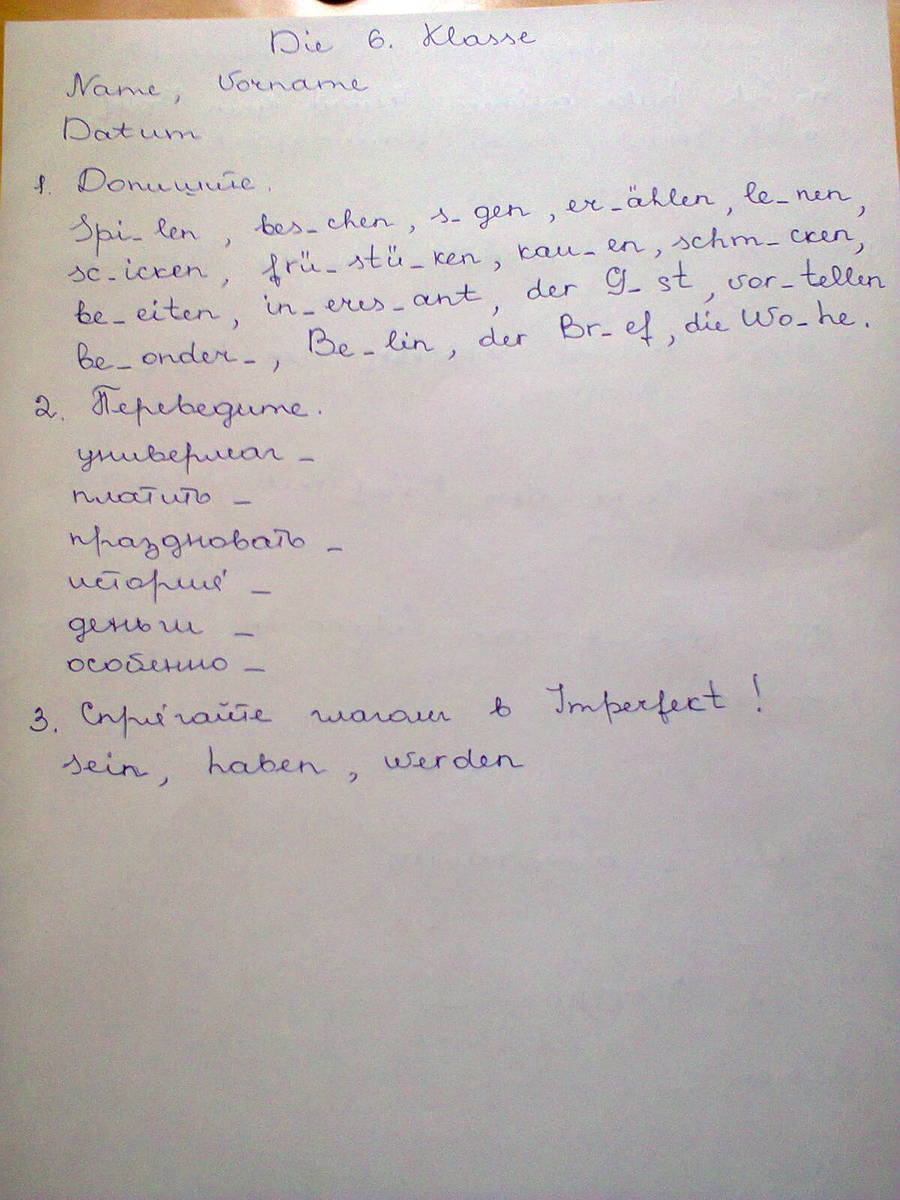 Die 6. Klasse
Name, Vorname
Datum
1. Допишите.
Spi_len, bes_chen, s_gen, er_ählen, le_nen,
sc_icken, frü_stü_ken, kau_en, schm_cken,
be_eiten, in_eres_ant, der G_st, vor_tellen
be_onder_, Be_lin, der Br_ef, die Wo_he.
2. Переведите.
универмаг –
платить –
праздновать –
история –
деньги –
особенно –
3. Спрягайте глаголы в Imperfect!
sein, haben, werden